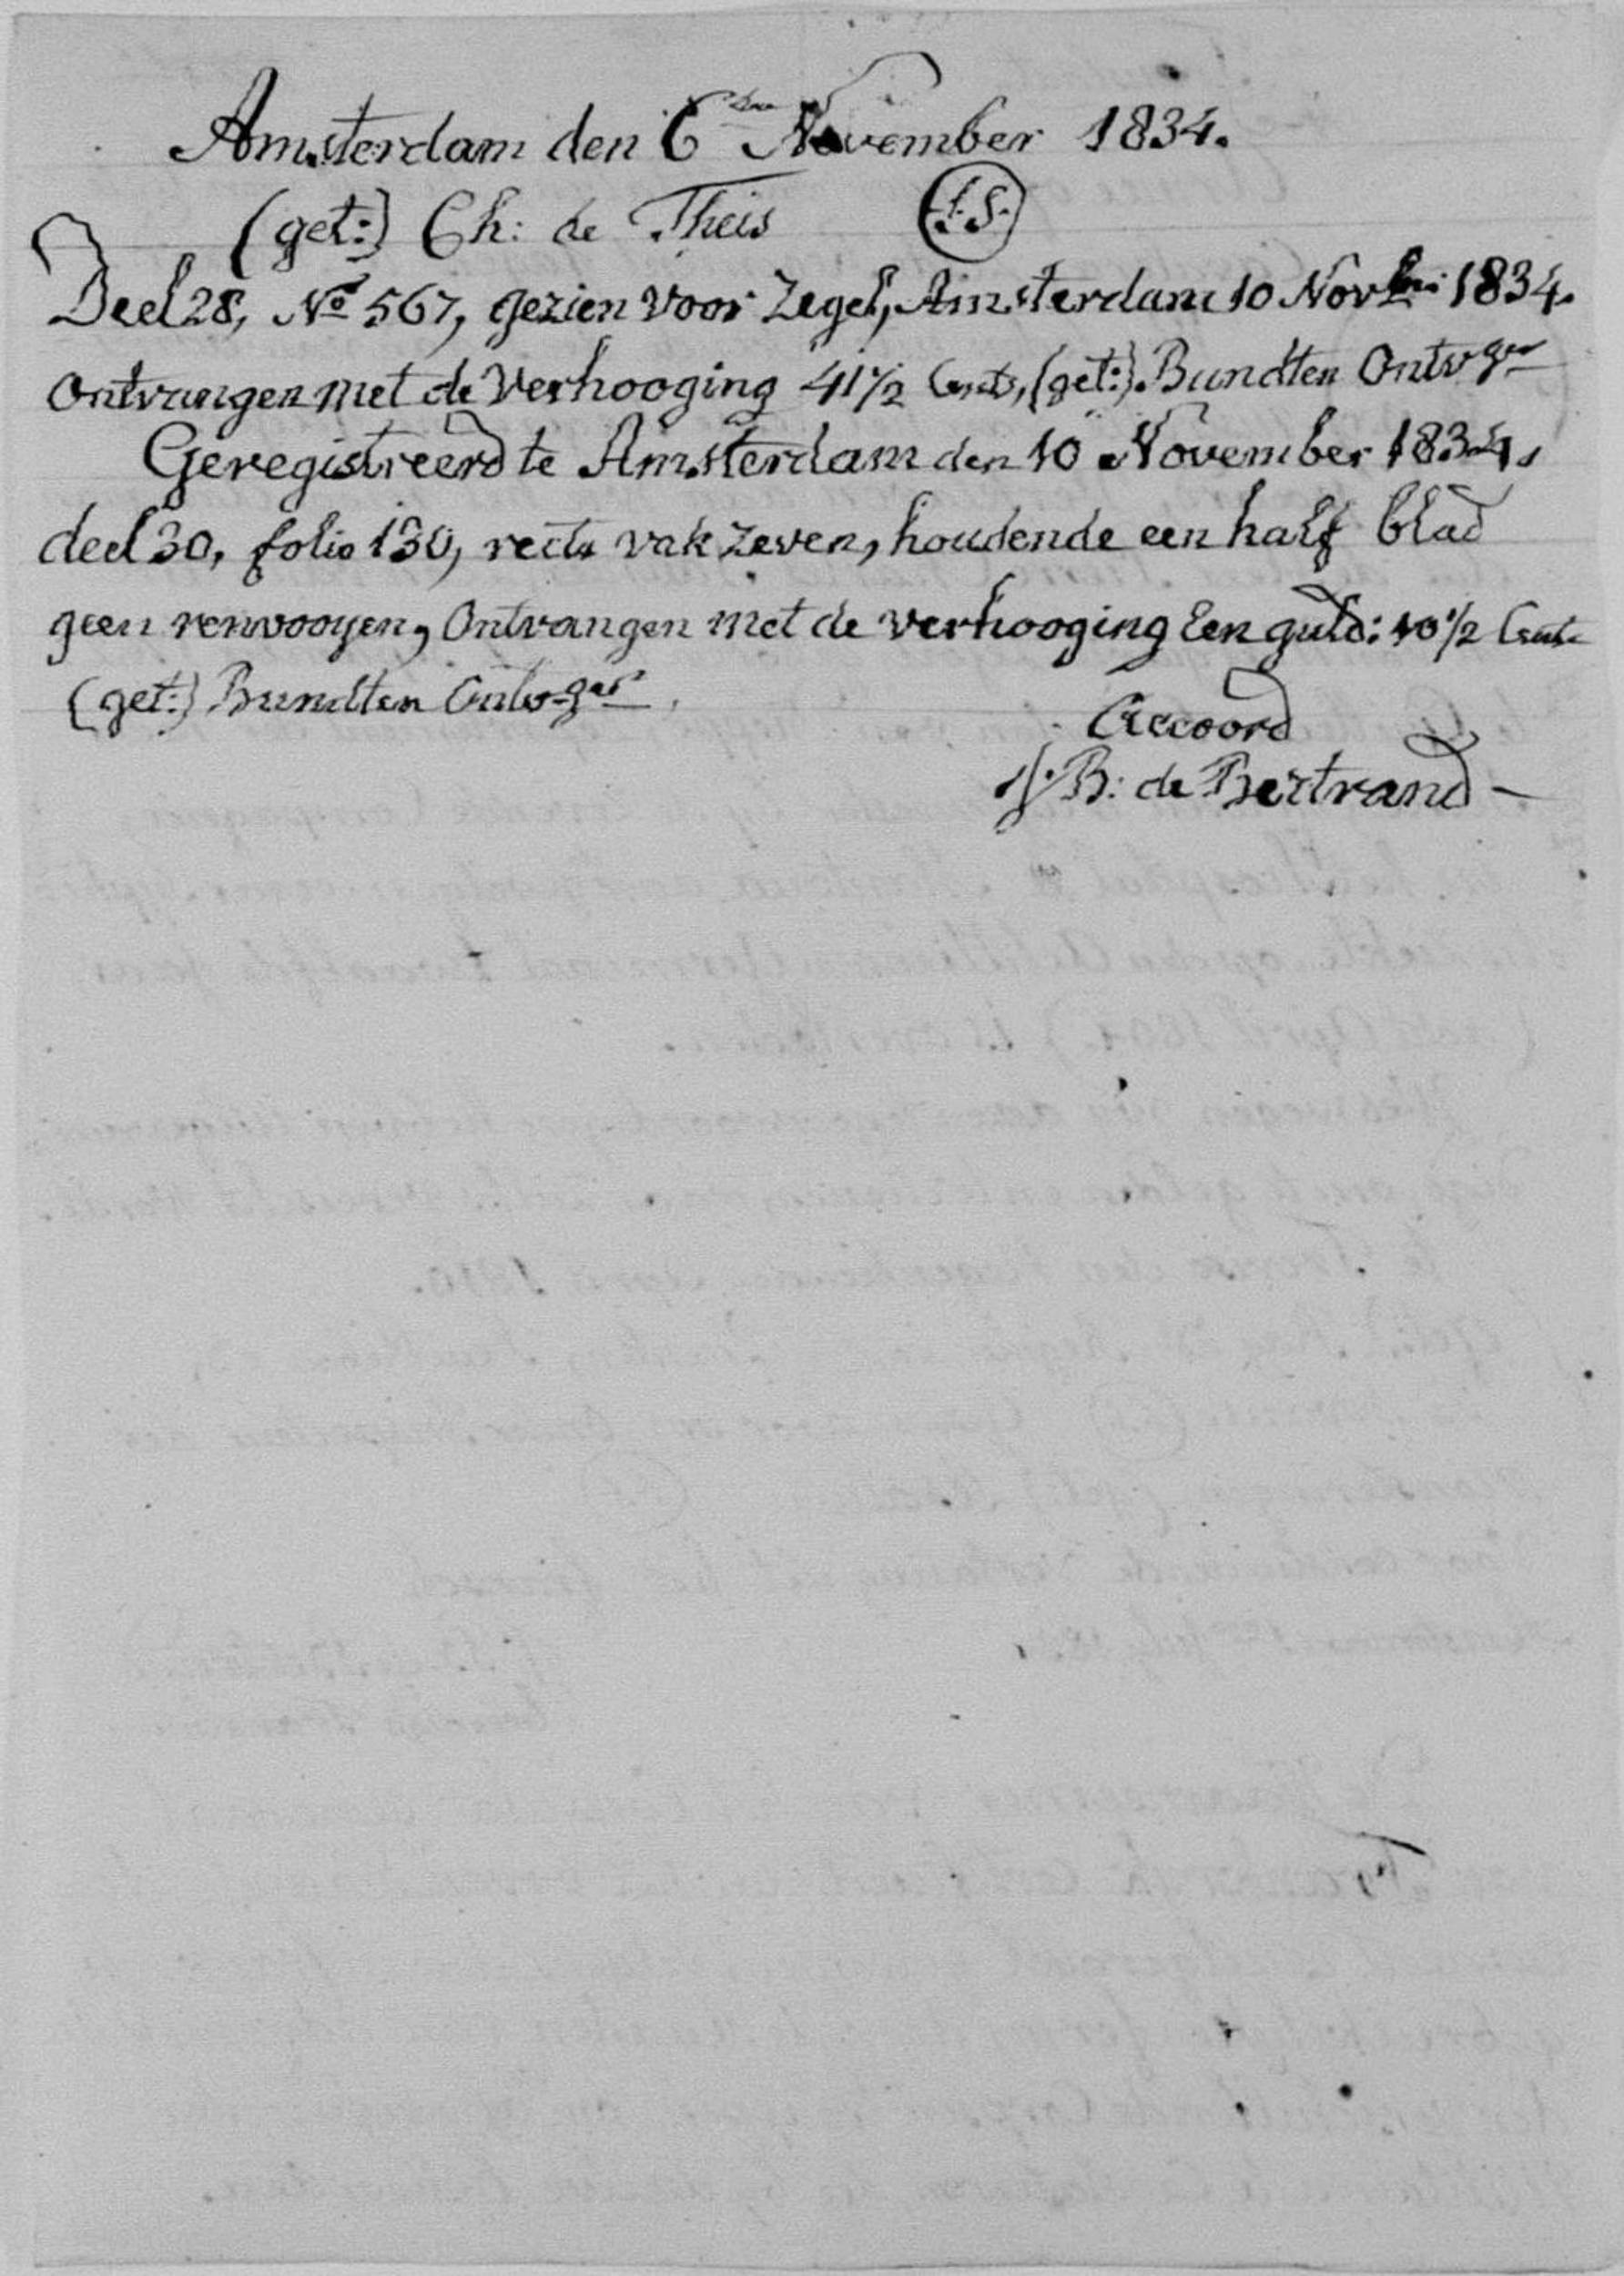 Amsterdam den 6den November 1834.
(get:) Ch: de Theis (L.S.)
Deel 28, No 567, gezien voor Zegel, Amsterdam 10 Novber 1834.
Ontvangen met de Verhooging 41½ Cents, (get:) Bundten Ontvger
Geregistreerd te Amsterdam den 10 November 1834,
deel 30, folio 130, recto vak zeven, houdende een half blad
geen renvooyen, Ontvangen met de verhooging Een guld: 10½ Cents
(get:) Bundten Ontvger
Accoord
B: de Bertrand